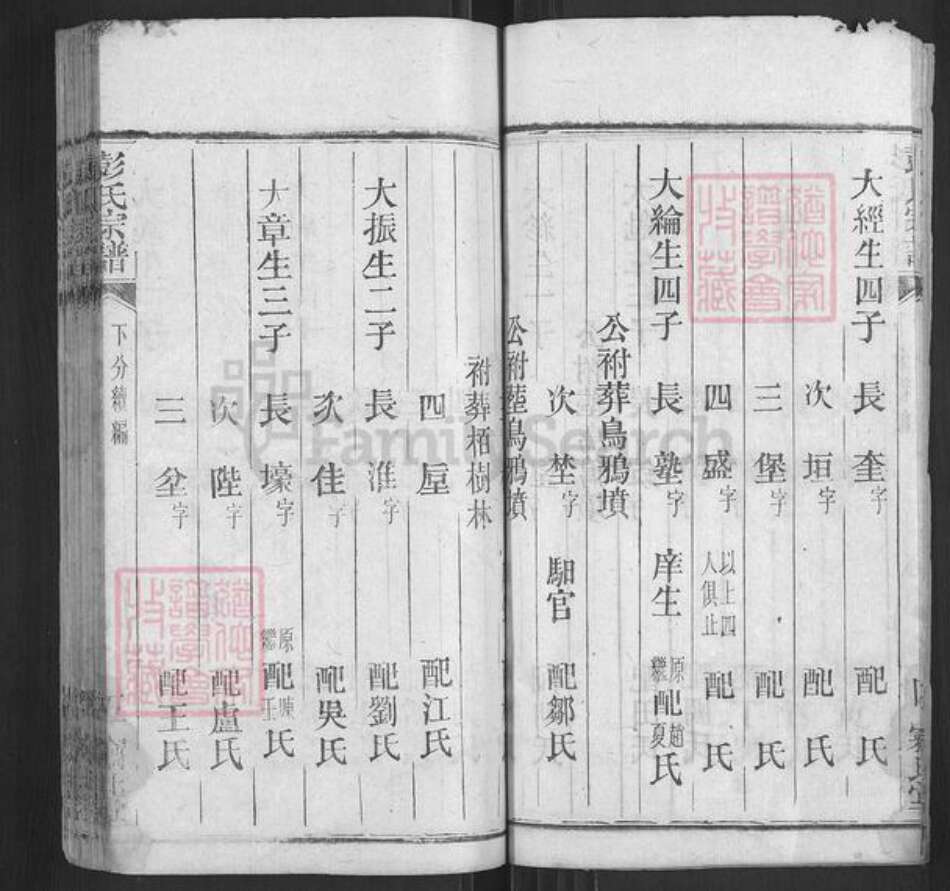 大經生四子 長奎字 配 氏
次垣字 配 氏
三堡字 配 氏
四盛字 以上四人俱止 配 氏
大綸生四子 長塾字 庠生 原配趙氏 繼配夏氏
公祔葬烏鴉墳
次埜字 馹官 配鄒氏
公祔葬烏鴉墳
祔葬栢樹林
四垕 配江氏
大振生二子 長淮字 配劉氏
次佳字 配吳氏
大章生三子 長壕字 原繼配 王氏
次陛字 配盧氏
三坌字 配王氏
彭氏宗譜 下分續編
FamilySearch